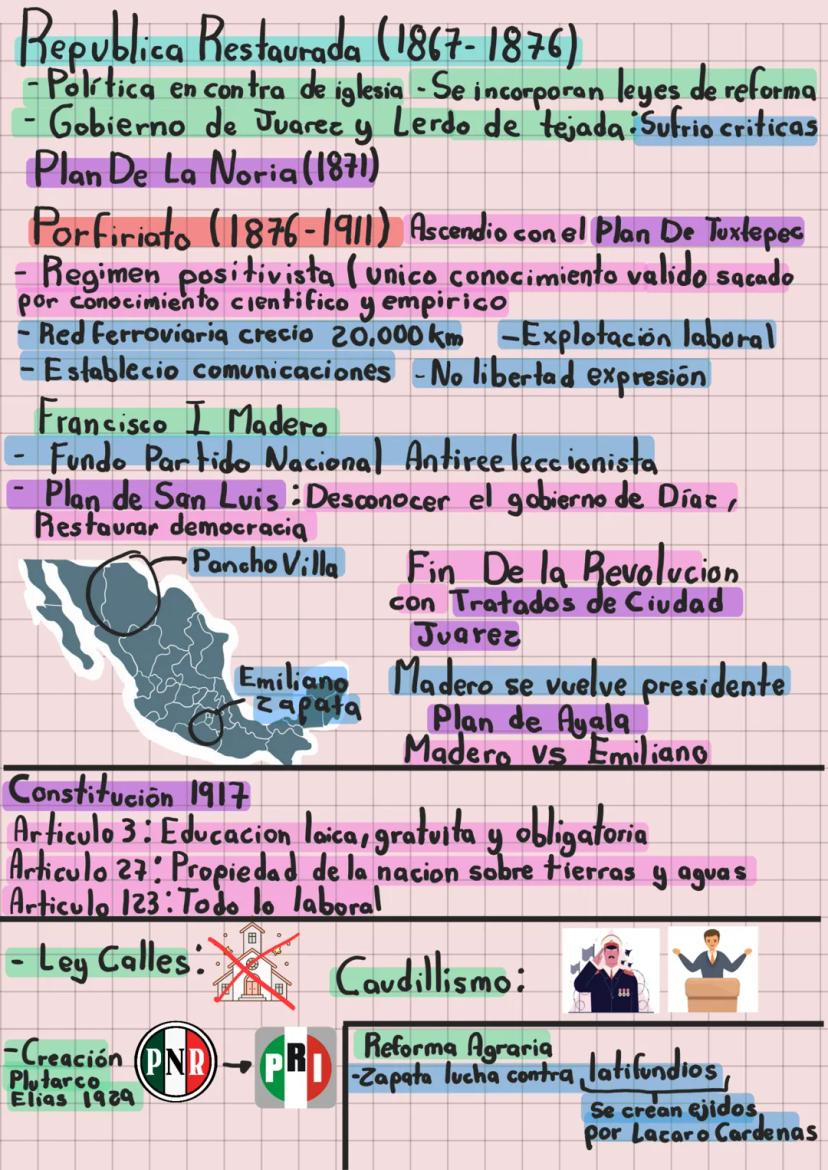 Republica Restaurada (1867-1876)
- Política en contra de iglesia - Se incorporan leyes de reforma
- Gobierno de Juarez y Lerdo de tejada: Sufrio criticas
Plan De La Noria (1871)
Porfiriato (1876-1911) Ascendio con el Plan De Tuxtepec
- Regimen positivista (unico conocimiento valido sacado
por conocimiento cientifico y empirico
- Red Ferroviaria crecio 20,000 km - Explotación laboral
- Establecio comunicaciones - No libertad expresión
Francisco I Madero
- Fundo Partido Nacional Antireeleccionista
- Plan de San Luis: Desconocer el gobierno de Díaz,
Restaurar democracia
Pancho Villa
Emiliano
Zapata
Fin De la Revolucion
con Tratados de Ciudad
Juarez
Madero se vuelve presidente
Plan de Ayala
Madero vs Emiliano
Constitución 1917
Articulo 3: Educacion laica, gratuita y obligatoria
Articulo 27: Propiedad de la nacion sobre tierras y aguas
Articulo 123: Todo lo laboral
- Ley Calles:
Caudillismo:
- Creación
Plutarco
Elias 1929
PNR
PRI
Reforma Agraria
- Zapata lucha contra latifundios,
Se crean ejidos
por Lacaro Cardenas